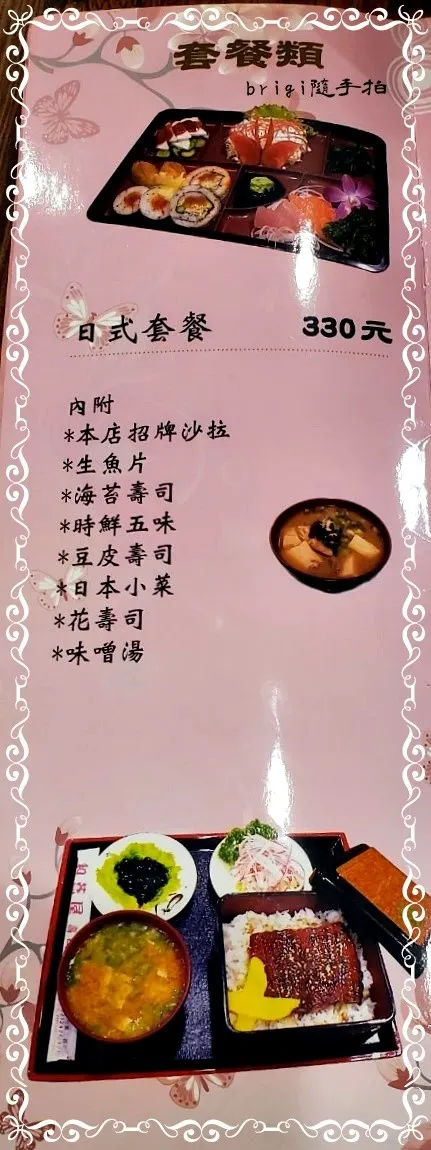 套餐類
brigi隨手拍
日式套餐 330元
內附
*本店招牌沙拉
*生魚片
*海苔壽司
*時鮮五味
*豆皮壽司
*日本小菜
*花壽司
*味噌湯